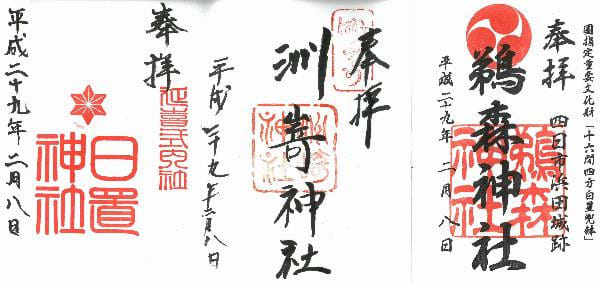 国指定重要文化財「十六間四方白星兜鉢」
四日市浜田城跡
奉拝
鵜森神社
鵜森神社
平成二十九年 二月 八日
奉拝
洲嵜神社
洲崎神社
平成二十九年二月八日
奉拝
延喜式内社
日置神社
平成二十九年二月八日